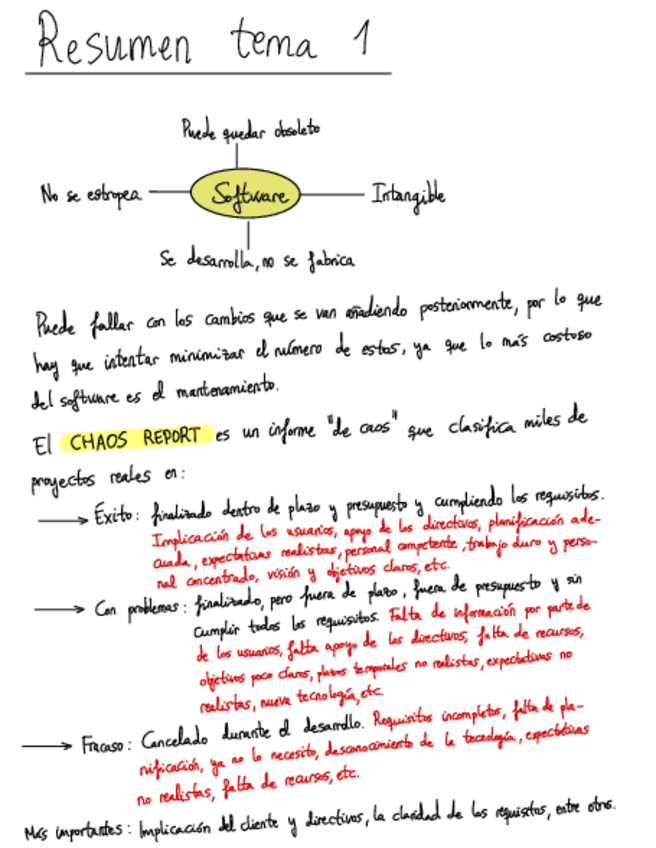 Resumen tema 1
Puede quedar obsoleto
No se estropea
Software
Intangible
Se desarrolla, no se fabrica
Puede fallar con los cambios que se van añadiendo posteriormente, por lo que
hay que intentar minimizar el número de estos, ya que lo más costoso
del software es el mantenamiento.
El CHAOS REPORT es un informe "de caos" que clasifica miles de
proyectos reales en:
→ Éxito: finalizado dentro de plazo y presupuesto y cumpliendo los requisitos.
Implicación de los usuarios, apoyo de los directivos, planificación ade-
cuada, expectativas realistas, personal competente, trabajo duro y perso-
nal concentrado, visión y objetivos claros, etc.
→ Con problemas: finalizado, pero fuera de plazo, fuera de presupuesto y sin
cumplir todos los requisitos. Falta de información por parte de
de los usuarios, falta apoyo de los directivos, falta de recursos,
objetivos poco claros, plazos temporales no realistas, expectativas no
realistas, nueva tecnología, etc.
→ Fracaso: Cancelado durante el desarrollo. Requisitos incompletos, falta de pla-
nificación, ya no lo necesito, desconocimiento de la tecnología, expectativas
no realistas, falta de recursos, etc.
Más importantes: Implicación del cliente y directivos, la claridad de los requisitos, entre otros.